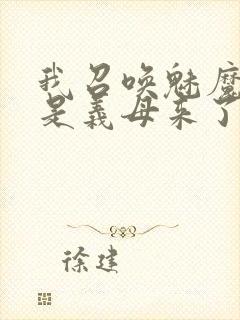 我召唤魅魔
是义母来了
徐建